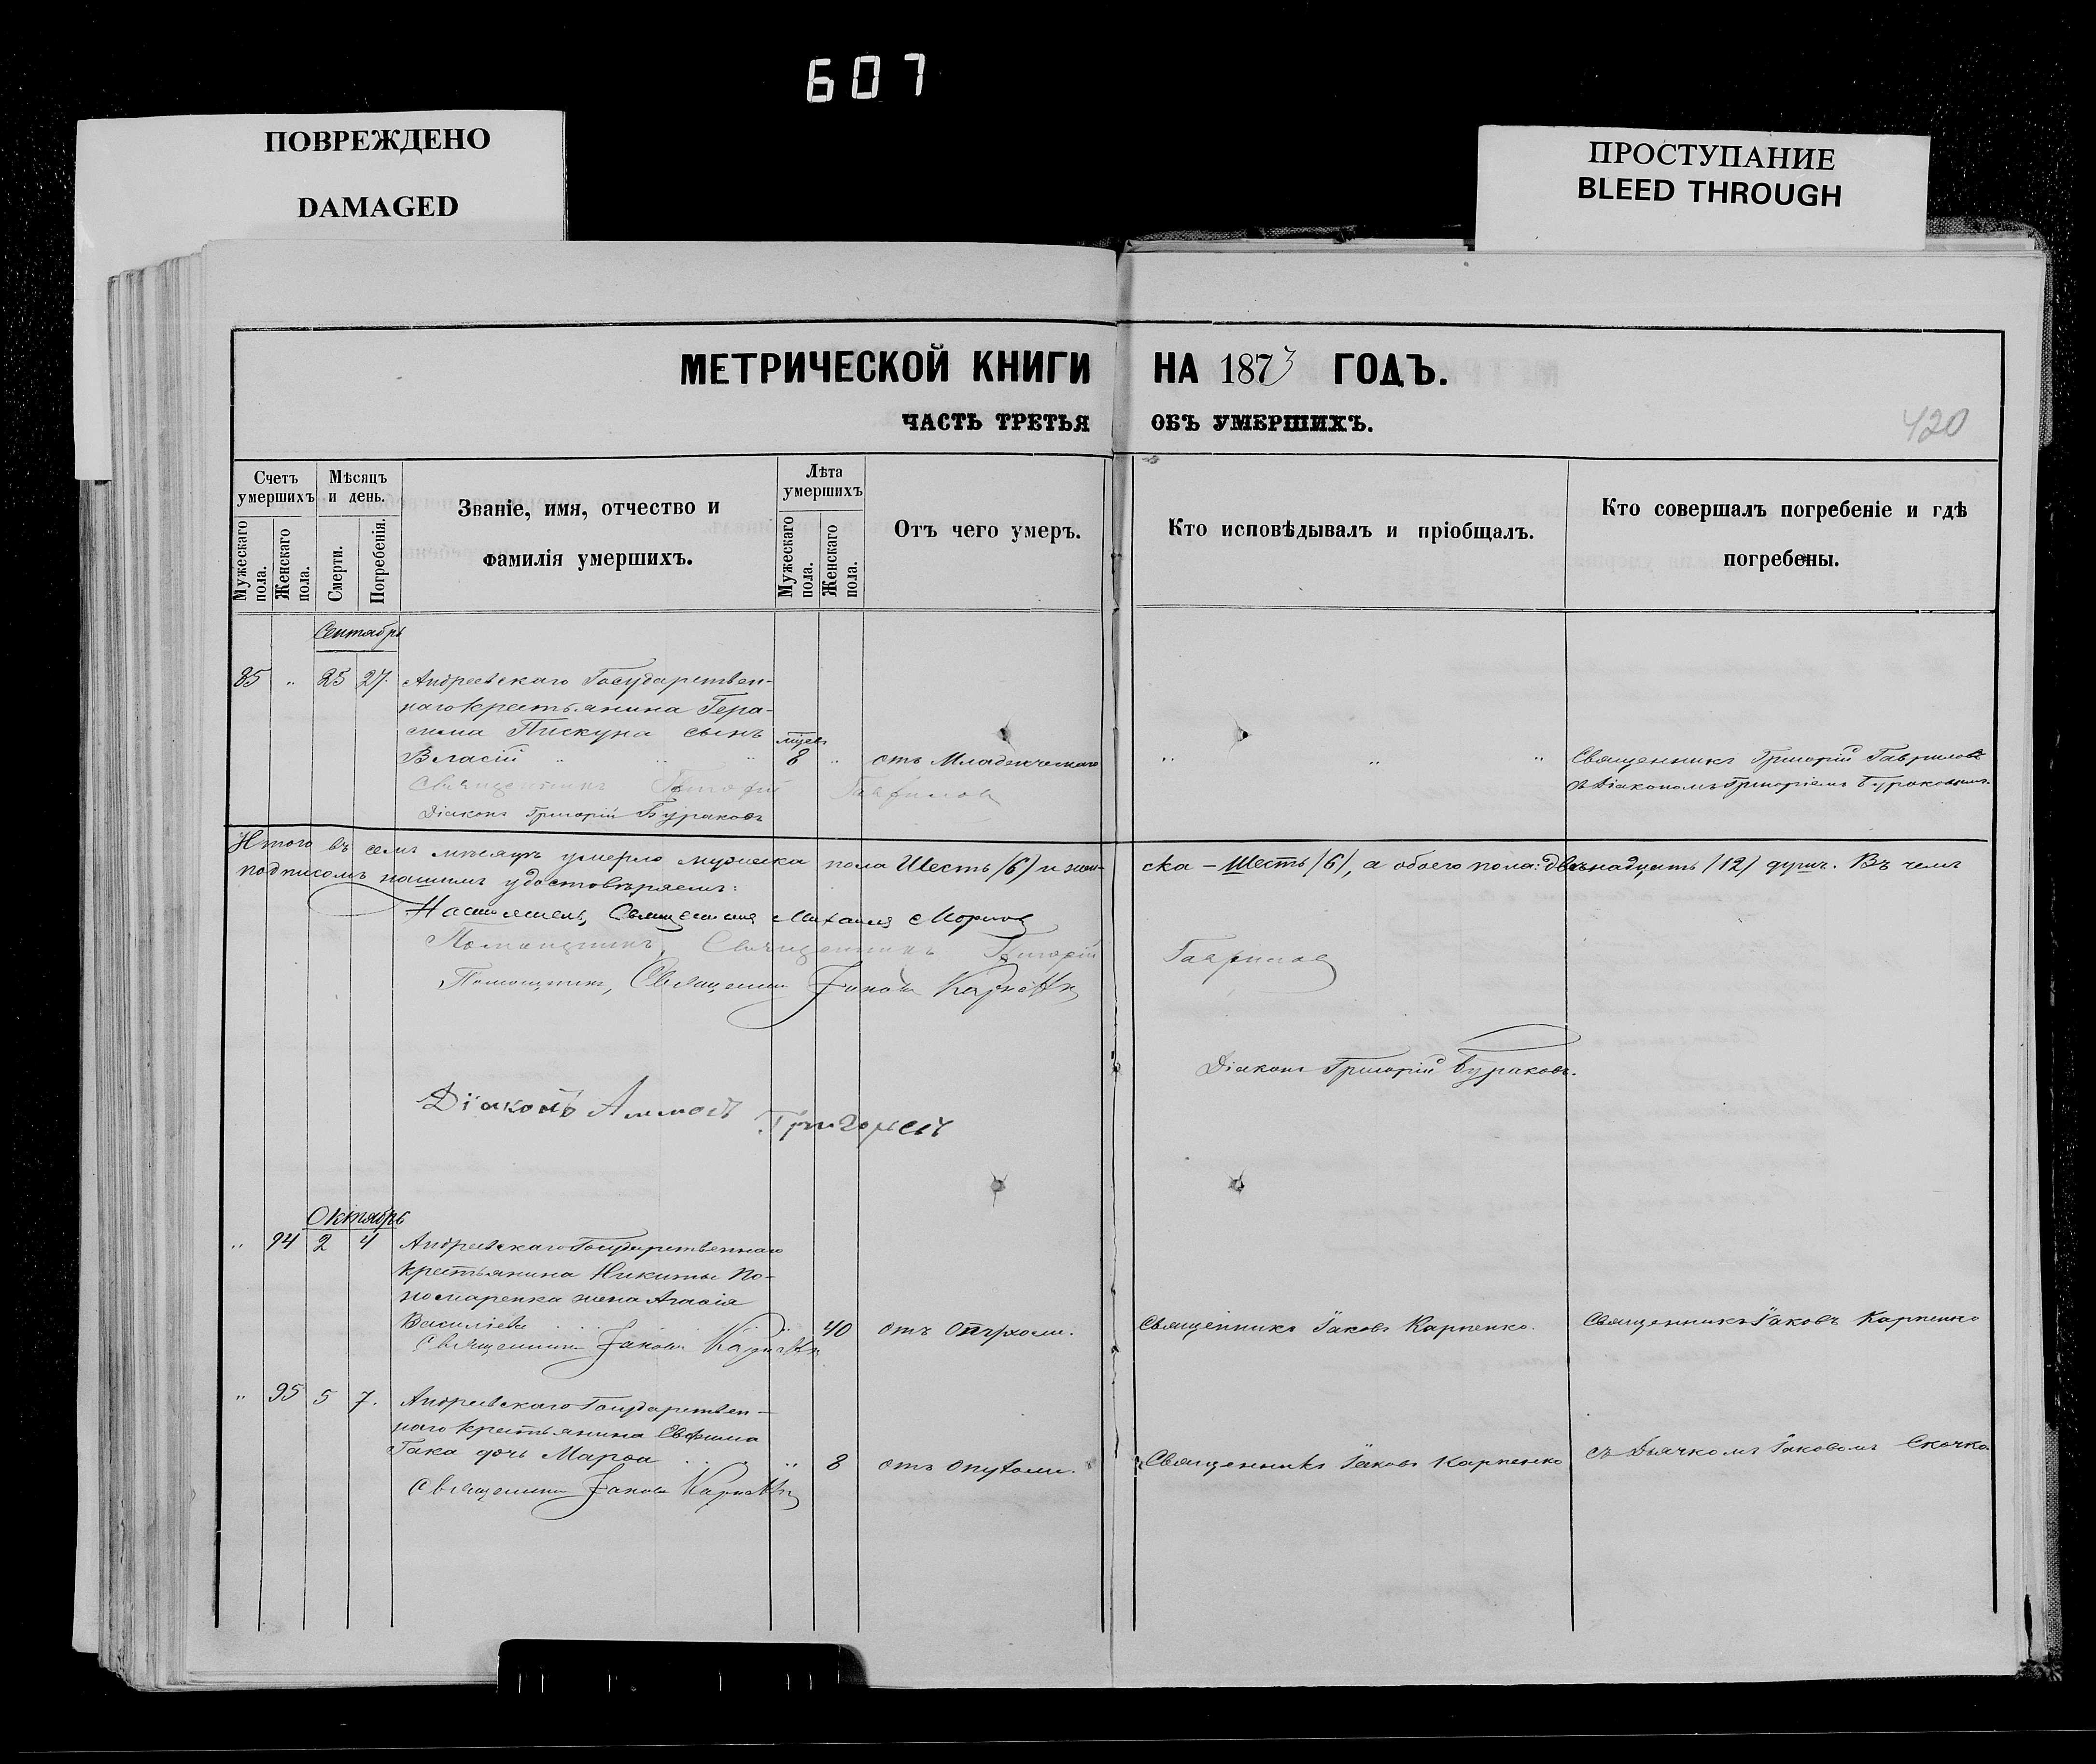 607
ПОВРЕЖДЕНО
DAMAGED
ПРОСТУПАНИЕ
BLEED THROUGH
МЕТРИЧЕСКОЙ КНИГИ НА 1873 ГОДЪ.
ЧАСТЬ ТРЕТЬЯ ОБЪ УМЕРШИХЪ.
420
Счетъ умершихъ
Мужескаго пола.
Женскаго пола.
Мѣсяцъ и день.
Смерти.
Погребенія.
Званіе, имя, отчество и
фамилія умершихъ.
Лѣта умершихъ
Мужескаго пола.
Женскаго пола.
Отъ чего умеръ.
Кто исповѣдывалъ и пріобщалъ.
Кто совершалъ погребеніе и гдѣ
погребены.
Сентябрь
85 „ 25 27. Андреевскаго Государствен-
наго крестьянина Гера-
сима Пискуна сынъ
Власій „ „ „ 8 „ отъ Младенческаго „ „ „ Священникъ Григорій Гавриловъ
съ Діакономъ Григоріемъ Бураковымъ.
Священникъ Григорій Гавриловъ
Діаконъ Григорій Бураковъ
Итого въ семъ мѣсяцѣ умерло мужеска пола Шесть /6/ и жен-ска – Шесть /6/, а обоего пола: двѣнадцать /12/ душъ. Въ чемъ
подписомъ нашимъ удостовѣряемъ:
Настоятель, Священникъ Михаилъ
Помощникъ, Священникъ Григорій Гавриловъ
Помощникъ, Священникъ Іаковъ Карпенко
Діаконъ Григорій Бураковъ.
Діаконъ
Октябрь
„ 94 2 4 Андреевскаго Государственнаго
крестьянина Никиты По-
номаренка жена Агафія
Васильева 40 отъ Опухоли. Священникъ Іаковъ Карпенко. Священникъ Іаковъ Карпенко
Священникъ Іаковъ Карпенко
„ 95 5 7. Андреевскаго Государствен-
наго крестьянина Евфима
Гака дочь Марфа „ 8 отъ опухоли. Священникъ Іаковъ Карпенко съ Дьячкомъ Іаковомъ Скочко.
Священникъ Іаковъ Карпенко